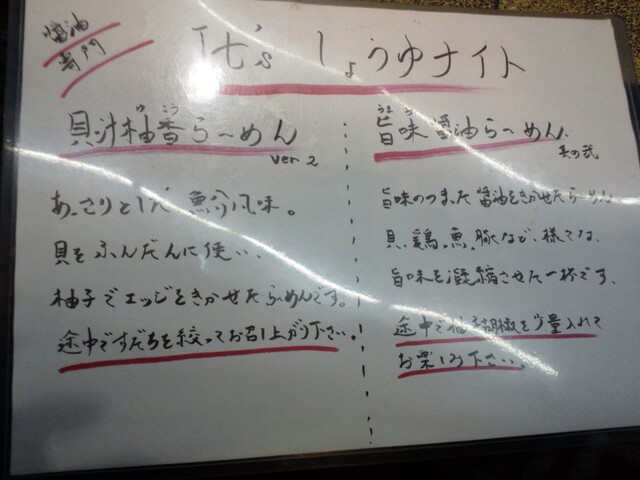 醤油
専門
It's しょうゆナイト
貝汁柚香らーめん
ゆ こう
ver 2
あっさりとした 魚介風味。
貝をふんだんに使い、
柚子でエッジをきかせたらーめんです。
途中ですだちを絞ってお召し上がり下さい。
うま
旨味醤油らーめん
其の弐
旨味のつまった醤油をきかせたらーめん
貝、鶏、魚、豚など、様々な、
旨味を凝縮させた一杯です。
途中で柚子胡椒を少量入れて
お楽しみ下さい。